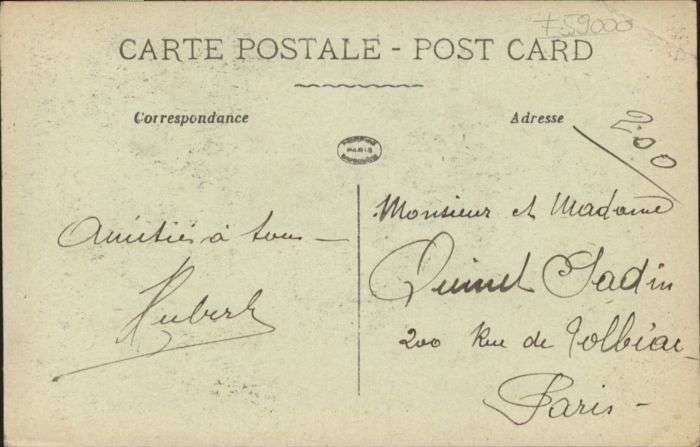 +59000
CARTE POSTALE - POST CARD
Correspondance
Adresse
2.00
PARIS
Amitiés à tous -
Hubert
Monsieur et Madame
Quinet Sadin
200 Rue de Tolbiac -
Paris -